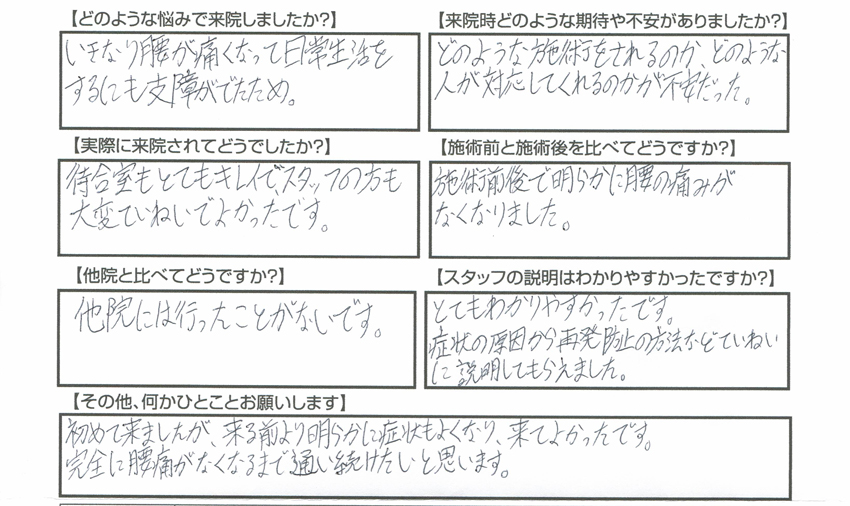 【どのような悩みで来院しましたか?】
いきなり腰が痛くなって日常生活を
するにも支障がでたため。
【来院時どのような期待や不安がありましたか?】
どのような施術をされるのか、どのような
人が対応してくれるのかが不安だった。
【実際に来院されてどうでしたか?】
待合室もとてもキレイで、スタッフの方も
大変ていねいでよかったです。
【施術前と施術後を比べてどうですか?】
施術前後で明らかに腰の痛みが
なくなりました。
【他院と比べてどうですか?】
他院には行ったことがないです。
【スタッフの説明はわかりやすかったですか?】
とてもわかりやすかったです。
症状の原因から再発防止の方法などていねい
に説明してもらえました。
【その他、何かひとことお願いします】
初めて来ましたが、来る前より明らかに症状もよくなり、来てよかったです。
完全に腰痛がなくなるまで通い続けたいと思います。